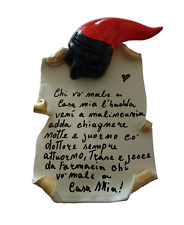 Chi vo' male a
Casa mia l'hadda
venì a malincunia
adda chiagnere
notte e juorno co'
dottore sempre
attuorno, trase e jesce
da Farmacia chi
vo' male a
Casa Mia!